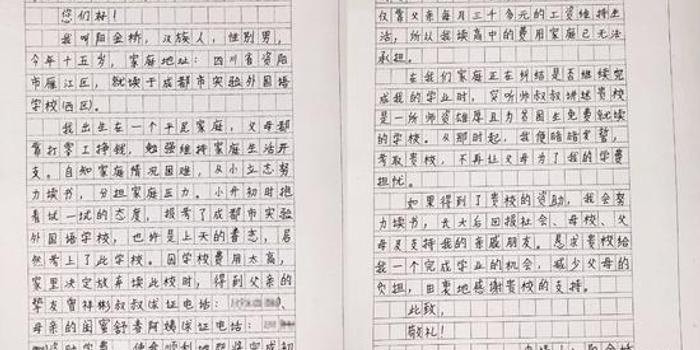 您们好！
我叫阳金桥，汉族人，性别男，
今年十五岁，家庭地址：四川省资阳
市雁江区，就读于成都市实验外国语
学校(西区)。
我出生在一个平民家庭，父母都
靠打零工挣钱，勉强维持家庭生活开
支。自知家庭情况困难，从小立志努
力读书，分担家庭压力。小升初时抱
着试一试的态度，报考了成都市实验
外国语学校，也许是上天的眷恋，居
然考上了此学校。因学校费用太高，
家里决定放弃读此校时，得到父亲的
挚友曾祥彬叔叔(求证电话：
母亲的闺蜜舒春阿姨(求证电话：
仅靠父亲每月三千多元的工资维持生
活，所以我读高中的费用家庭已无法
承担。
在我们家庭正在纠结是否继续完
成我的学业时，突听师叔叔讲述贵校
是一所师资雄厚且为贫困生免费就读
的学校。从那时起，我便暗暗发誓，
考取贵校，不再让父母为了我的学费
担忧。
如果得到了贵校的资助，我会努
力读书，长大后回报社会、母校、父
母及支持我的亲戚朋友。恳求贵校给
我一个完成学业的机会，减少父母的
负担，由衷地感谢贵校的支持。
此致，
敬礼！